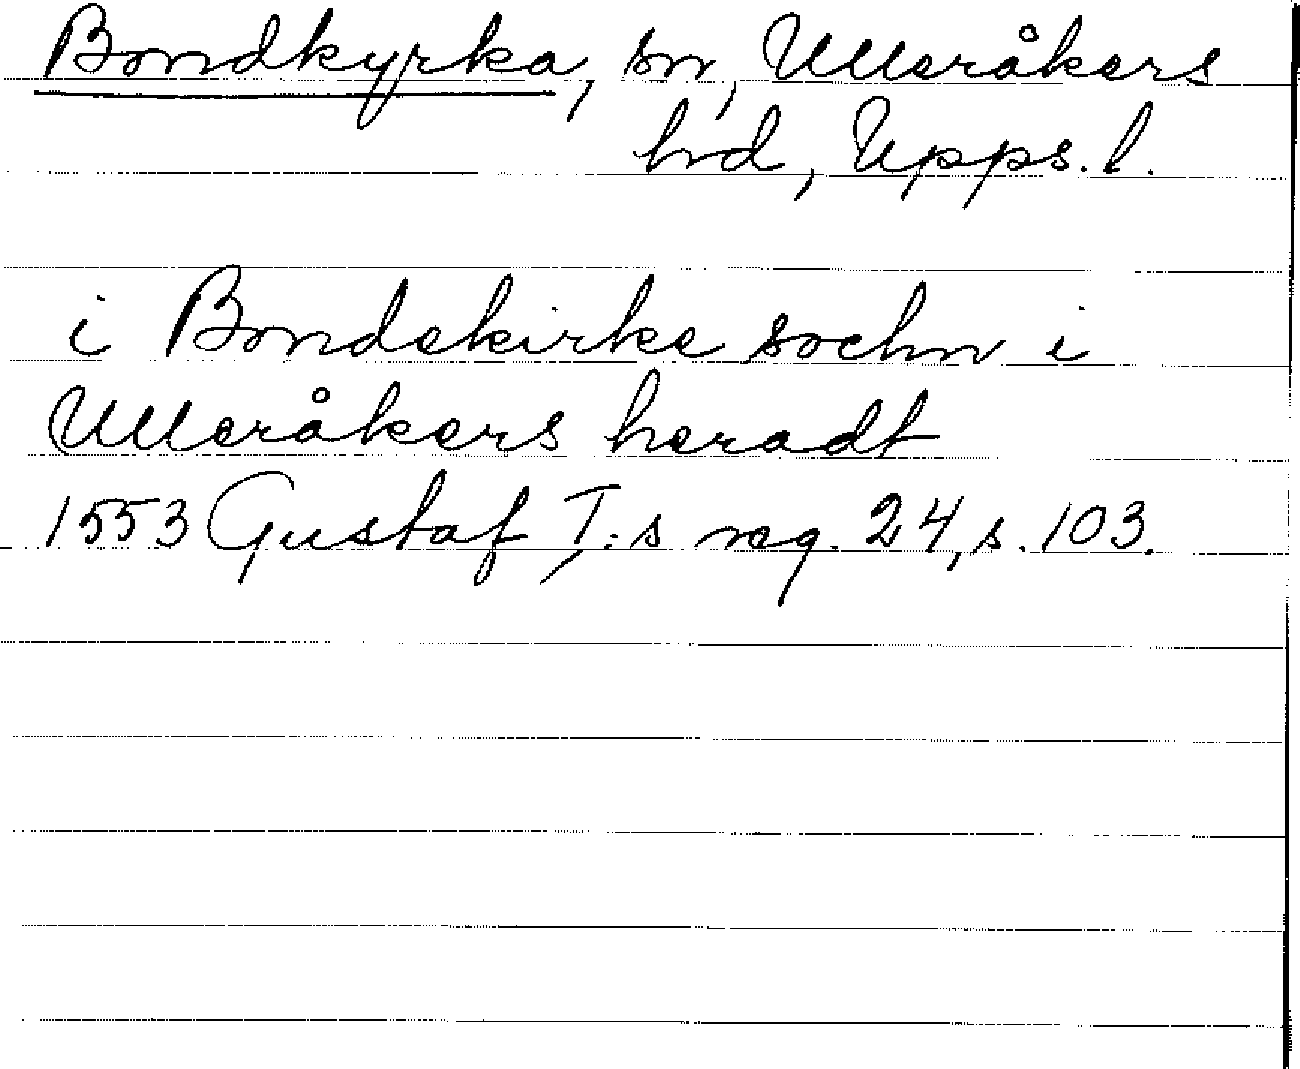 Bondkyrka, sn, Ulleråkers
hd, Upps. l.
i Bondekirke sochn i
Ulleråkers heradt
1553 Gustaf I:s reg. 24, s. 103.